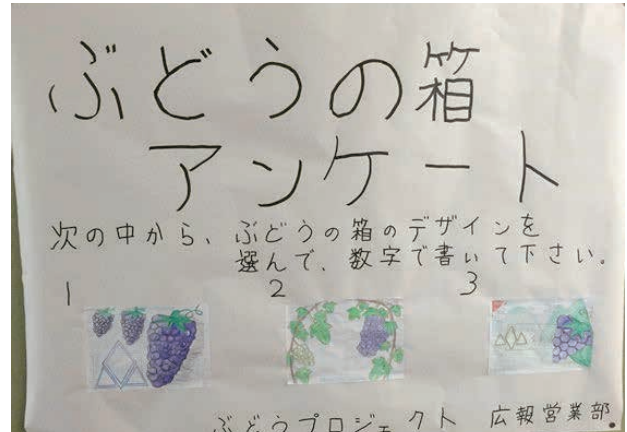 ぶどうの箱
アンケート
次の中から、ぶどうの箱のデザインを
選んで、数字で書いて下さい。
1 2 3
ぶどうプロジェクト 広報営業部.